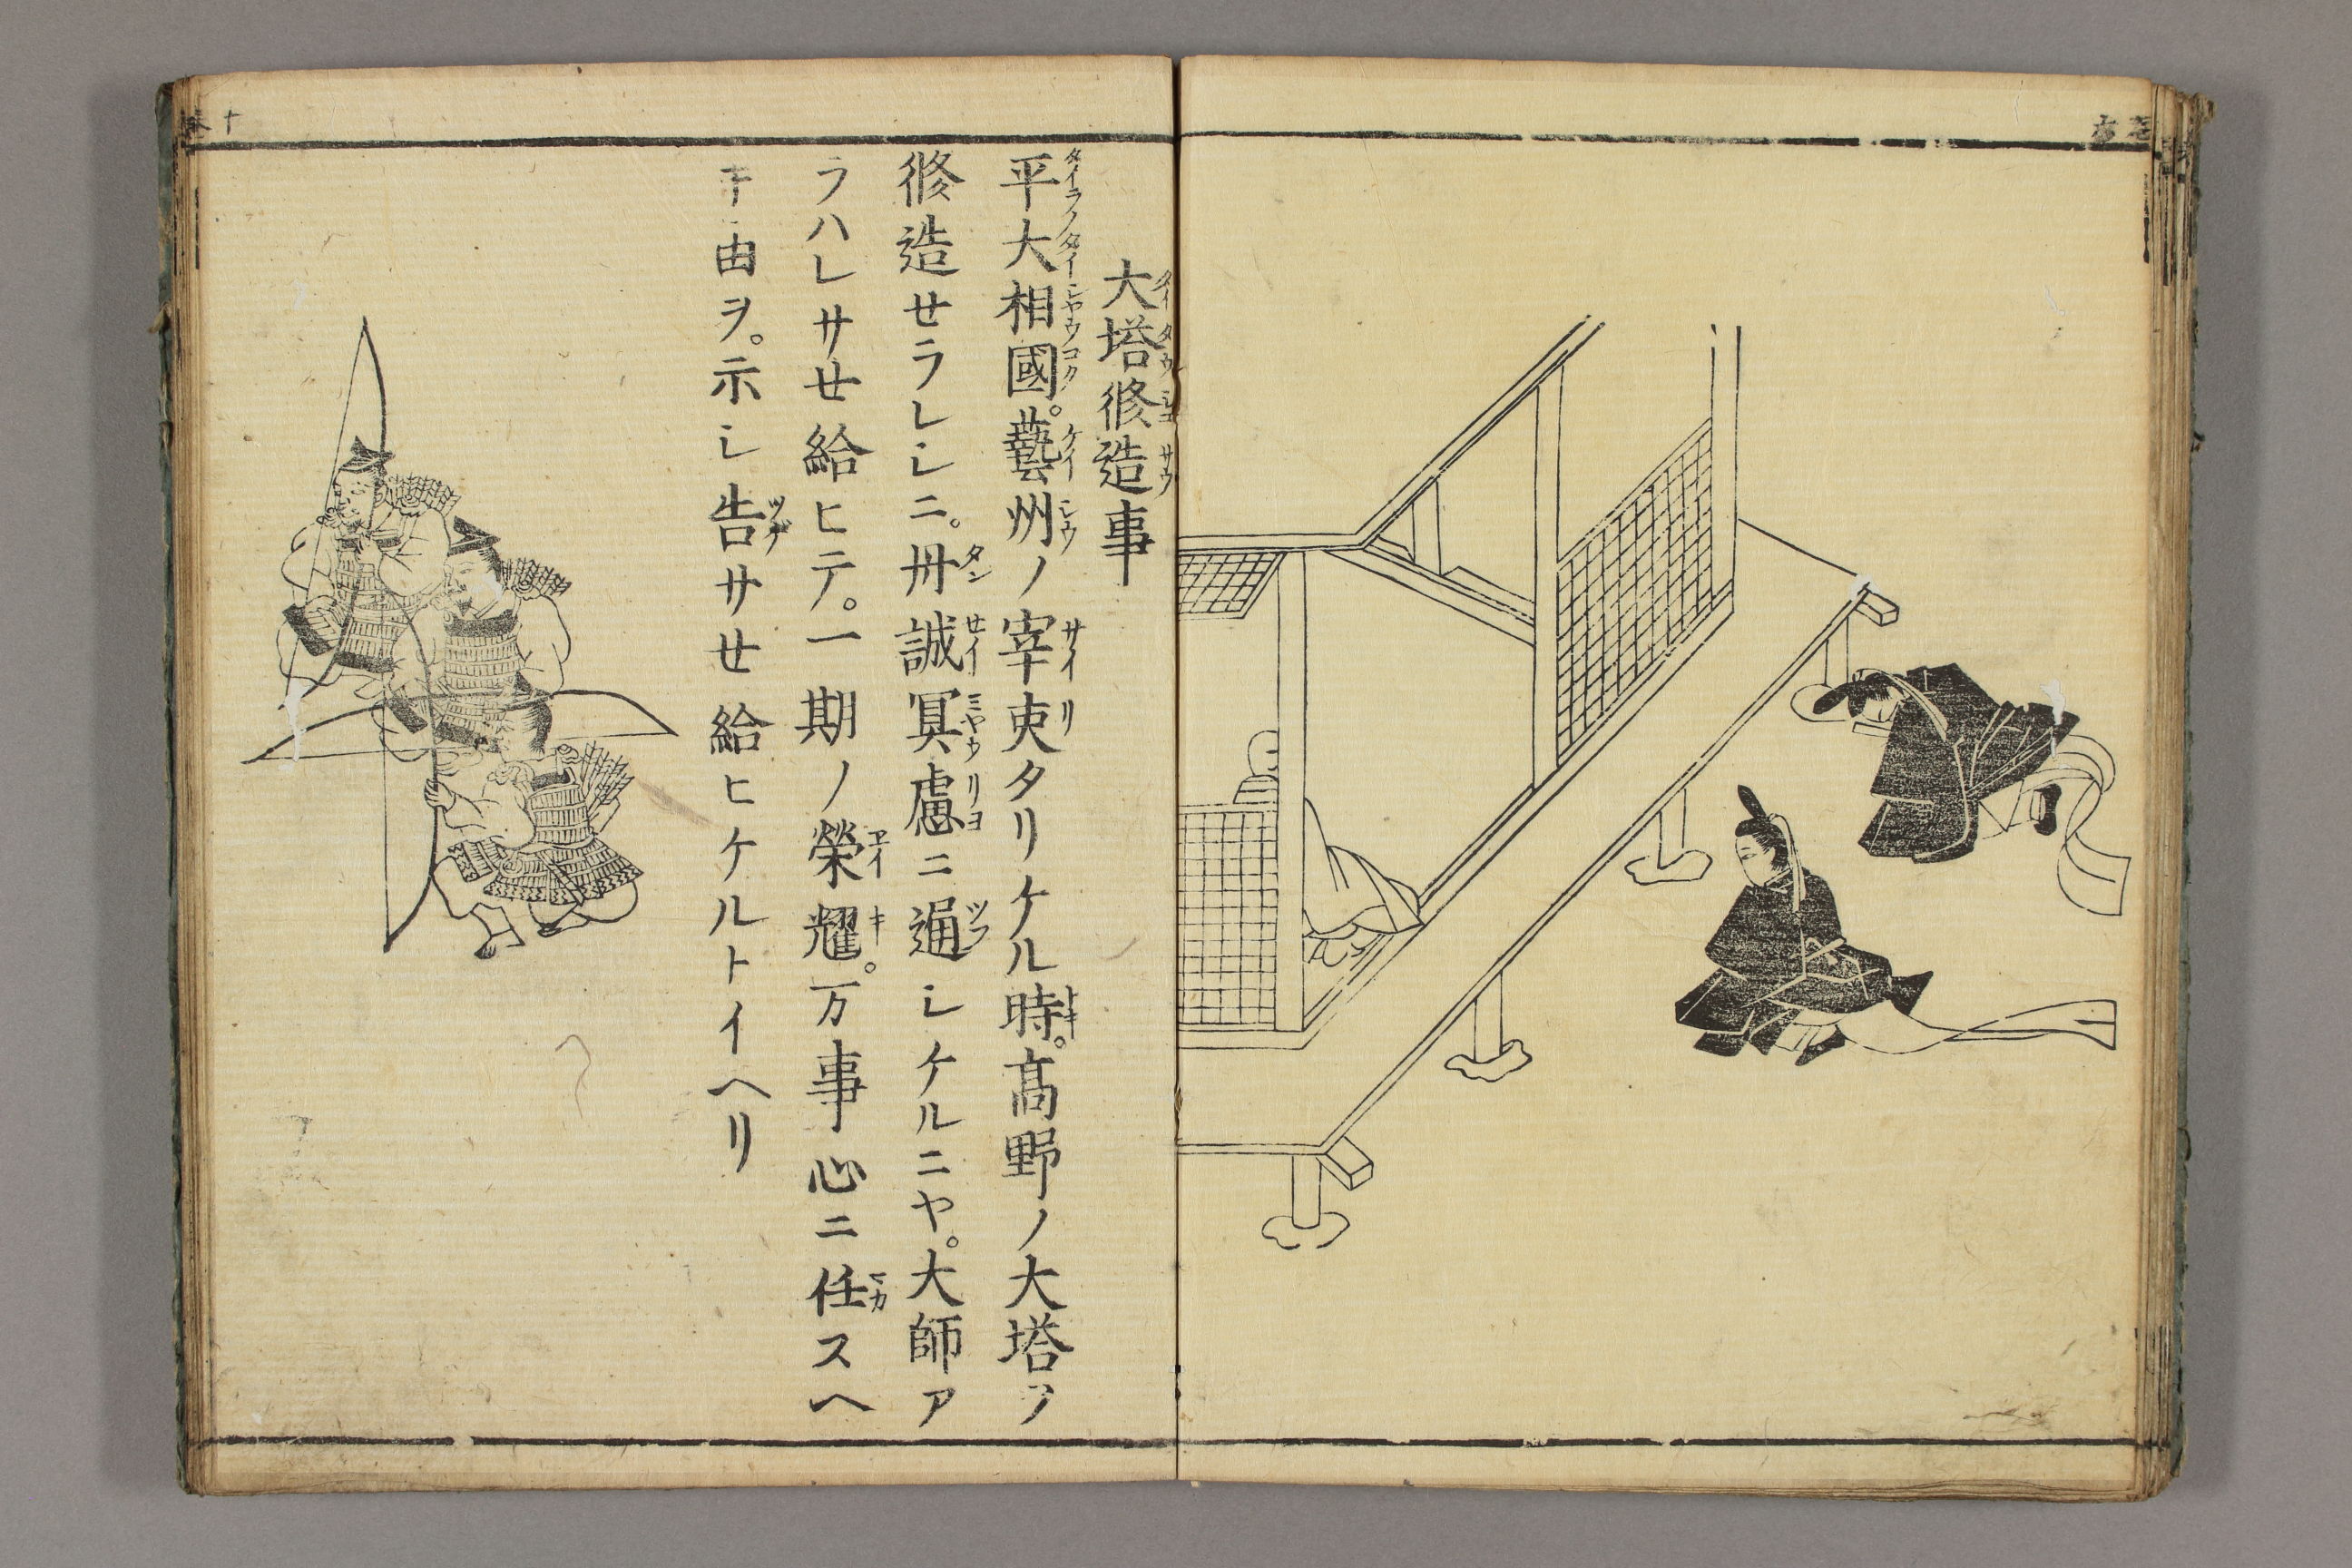 大塔修造事
平大相國。藝州ノ宰吏タリケル時。髙野ノ大塔ヲ
修造セラレシニ。丹誠冥慮ニ通シケルニヤ。大師ア
ラハレサセ給ヒテ。一期ノ榮耀。万事心ニ任スヘ
キ由ヲ。示シ告サセ給ヒケルトイヘリ